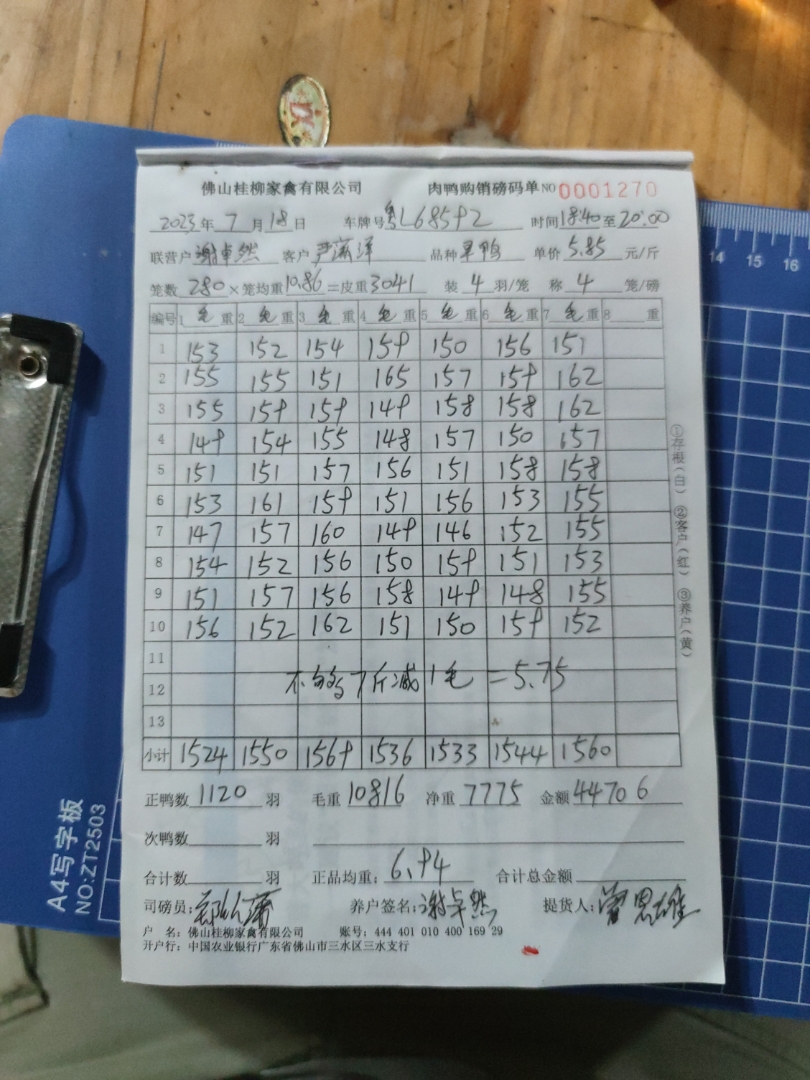 佛山桂柳家禽有限公司 肉鸭购销磅码单 NO 0001270
2023年 7月 18日 车牌号 粤L68592 时间 18:40 至 20:00
联营户 谢卓然 客户 品种 单价 5.85 元/斤
笼数 280 ×笼均重 10.86 =皮重 3041 装 4 羽/笼 称 4 笼/磅
编号 1 毛 重 2 毛 重 3 毛 重 4 毛 重 5 毛 重 6 毛 重 7 毛 重 8 重
1 153 152 154 159 150 156 151
2 155 155 151 165 157 159 162
3 155 159 159 149 158 158 162
4 149 154 155 148 157 150 157
5 151 151 157 156 151 158 158
6 153 161 159 151 156 153 155
7 147 157 160 149 146 152 155
8 154 152 156 150 159 151 153
9 151 157 156 158 149 148 155
10 156 152 162 151 150 159 152
11
12 不够7斤减1毛=5.75
13
小计 1524 1550 1569 1536 1533 1544 1560
正鸭数 1120 羽 毛重 10816 净重 7775 金额 44706
次鸭数 羽
合计数 羽 正品均重: 6.94 合计总金额
司磅员: 养户签名: 谢卓然 提货人:
户 名: 佛山桂柳家禽有限公司 账号: 444 401 010 400 169 29
开户行: 中国农业银行广东省佛山市三水区三水支行
①存根(白) ②客户(红) ③养户(黄)
A4写字板
NO:ZT2503
14 15 16